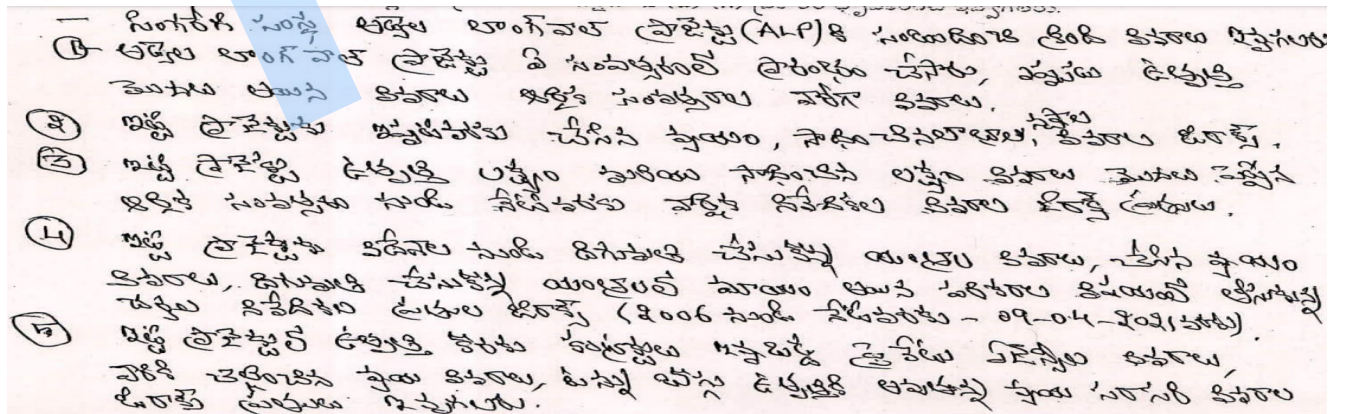 సింగరేణి సంస్థ అడ్రేల లాంగ్‌వాల్ ప్రాజెక్టు (ALP) కి సంబంధించి క్రింది వివరాలు ఇవ్వగలరు
① అడ్రేల లాంగ్‌వాల్ ప్రాజెక్టు ఏ సంవత్సరంలో ప్రారంభం చేసారు, ఎప్పుడు ఉత్పత్తి
మొదలు అయిన వివరాలు ఆర్థిక సంవత్సరాల వారీగా వివరాలు.
② ఇట్టి ప్రాజెక్టుకు ఇప్పటివరకు చేసిన వ్యయం, సాధించిన లాభాలు, నష్టాల వివరాల జిరాక్స్.
③ ఇట్టి ప్రాజెక్టు ఉత్పత్తి లక్ష్యం మరియు సాధించిన లక్ష్యం వివరాలు మొదలు పెట్టిన
ఆర్థిక సంవత్సరం నుండి నేటివరకు వార్షిక నివేదికల వివరాల జిరాక్స్ ప్రతులు.
④ ఇట్టి ప్రాజెక్టుకు విదేశాల నుండి దిగుమతి చేసుకున్న యంత్రాల వివరాలు, చేసిన వ్యయం
వివరాలు, దిగుమతి చేసుకున్న యంత్రాలలో మాయం అయిన పరికరాల విషయంలో తీసుకున్న
చర్యల నివేదికల ప్రతుల జిరాక్స్ (2006 నుండి నేటివరకు - 09-04-2021 వరకు).
⑤ ఇట్టి ప్రాజెక్టులో ఉత్పత్తి కొరకు కాంట్రాక్టులు ఇవ్వబడ్డ ప్రైవేటు ఏజెన్సీల వివరాలు,
వారికి చెల్లించిన వ్యయ వివరాలు, టన్ను బొగ్గు ఉత్పత్తికి అవుతున్న వ్యయ సరాసరి వివరాల
జిరాక్స్ ప్రతులు ఇవ్వగలరు.